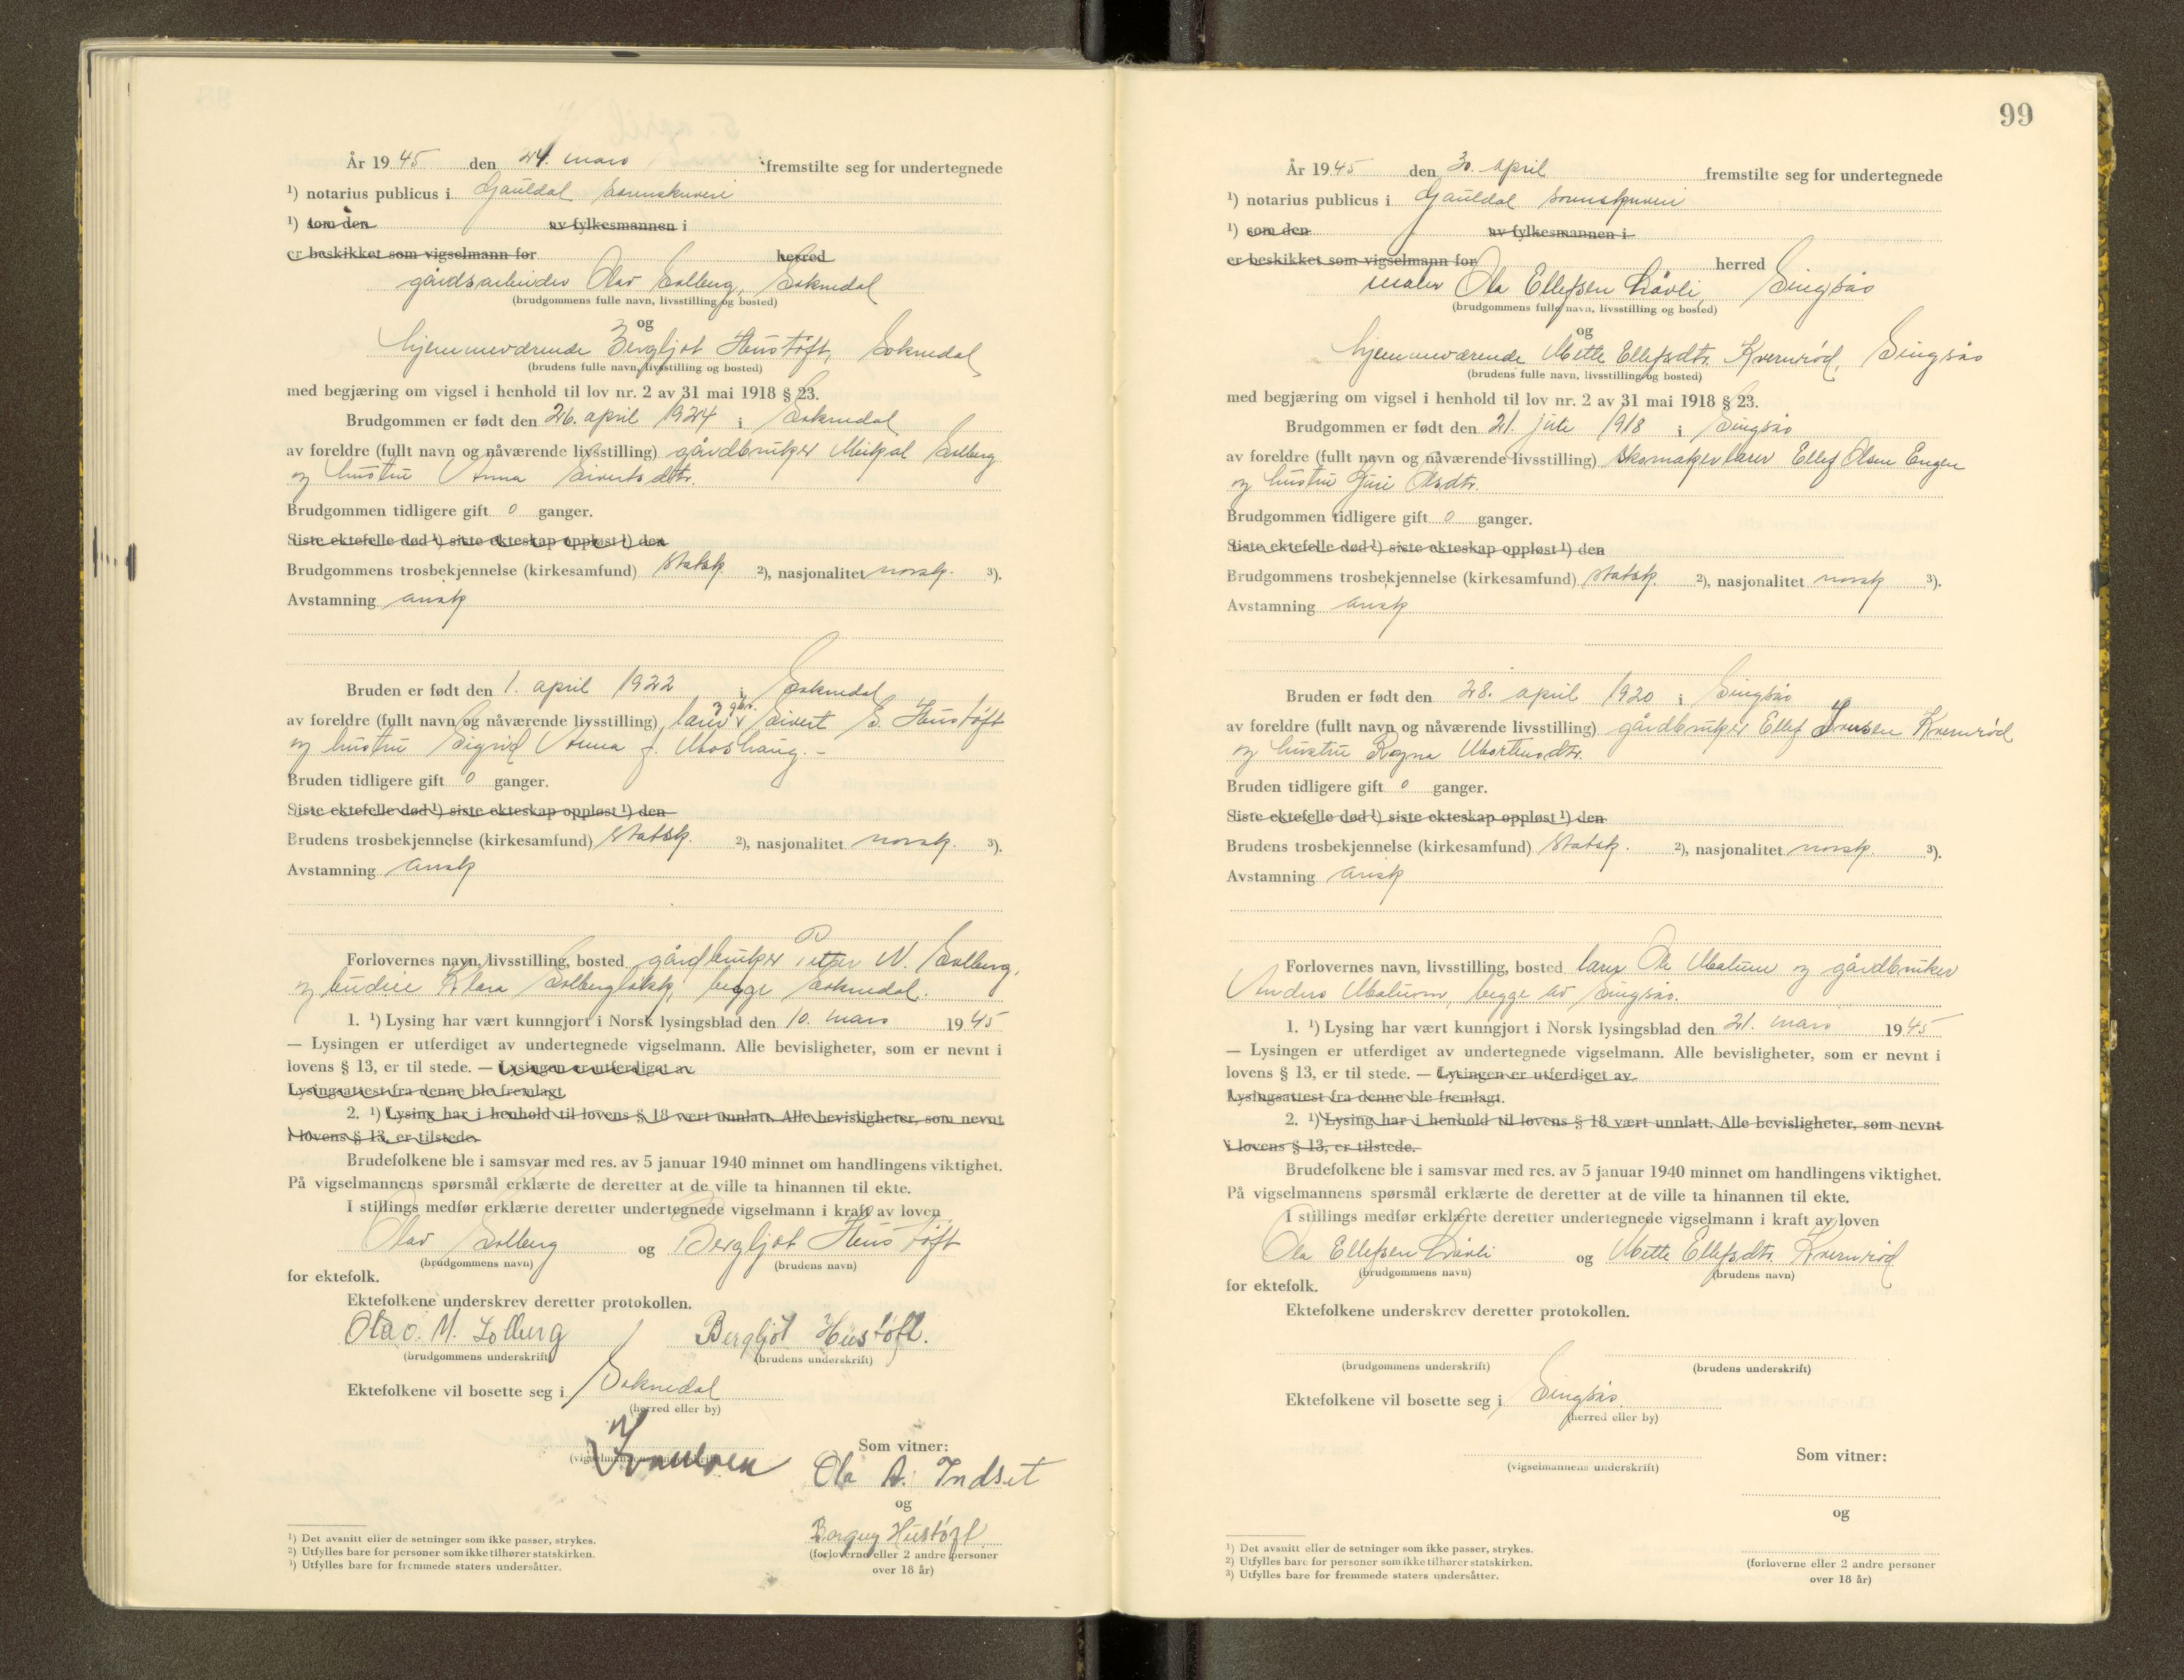 År 19 45 den 24. mars fremstilte seg for undertegnede
¹) notarius publicus i Gauldal sorenskriveri
¹) som den av fylkesmannen i
er beskikket som vigselmann for herred
gårdsarbeider Olav Solberg, Soknedal
(brudgommens fulle navn, livsstilling og bosted)
og
hjemmeværende Bergljot Hustøft, Soknedal
(brudens fulle navn, livsstilling og bosted)
med begjæring om vigsel i henhold til lov nr. 2 av 31 mai 1918 § 23.
Brudgommen er født den 26. april 1924 i Soknedal
av foreldre (fullt navn og nåværende livsstilling) gårdbruker Mikal Solberg
og hustru Anna Sivertsdtr.
Brudgommen tidligere gift 0 ganger.
Siste ektefelle død ¹) siste ekteskap oppløst ¹) den
Brudgommens trosbekjennelse (kirkesamfund) statsk. ²), nasjonalitet norsk. ³).
Avstamning arisk
Bruden er født den 1. april 1922 i Soknedal
av foreldre (fullt navn og nåværende livsstilling) Sivert S. Hustøft
og hustru Sigrid Anna f. Moshaug. -
Bruden tidligere gift 0 ganger.
Siste ektefelle død ¹) siste ekteskap oppløst ¹) den
Brudens trosbekjennelse (kirkesamfund) statsk. ²), nasjonalitet norsk. ³).
Avstamning arisk
Forlovernes navn, livsstilling, bosted gårdbruker Petter N. Solberg,
og budeie Klara Solbergløkk, begge Soknedal.
1. ¹) Lysing har vært kunngjort i Norsk lysingsblad den 10. mars 19 45
— Lysingen er utferdiget av undertegnede vigselmann. Alle bevisligheter, som er nevnt i
lovens § 13, er til stede. — Lysingen er utferdiget av
Lysingsattest fra denne ble fremlagt.
2. ¹) Lysing har i henhold til lovens § 18 vært unnlatt. Alle bevisligheter, som nevnt
i lovens § 13, er tilstede.
Brudefolkene ble i samsvar med res. av 5 januar 1940 minnet om handlingens viktighet.
På vigselmannens spørsmål erklærte de deretter at de ville ta hinannen til ekte.
I stillings medfør erklærte deretter undertegnede vigselmann i kraft av loven
Olav Solberg og Bergljot Hustøft
(brudgommens navn) (brudens navn)
for ektefolk.
Ektefolkene underskrev deretter protokollen.
Olav. M. Solberg Bergljot Hustøft.
(brudgommens underskrift) (brudens underskrift)
Ektefolkene vil bosette seg i Soknedal
(herred eller by)
Som vitner:
(vigselmannens underskrift)
Ola A. Indset
og
Borguy Hustøft
(forloverne eller 2 andre personer
over 18 år)
¹) Det avsnitt eller de setninger som ikke passer, strykes.
²) Utfylles bare for personer som ikke tilhører statskirken.
³) Utfylles bare for fremmede staters undersåtter.
99
År 19 45 den 30. april fremstilte seg for undertegnede
¹) notarius publicus i Gauldal sorenskriveri
¹) som den av fylkesmannen i
er beskikket som vigselmann for herred
maler Ola Ellefsen Løvli, Singsås
(brudgommens fulle navn, livsstilling og bosted)
og
hjemmeværende Mette Ellefsdtr. Kvernrød, Singsås
(brudens fulle navn, livsstilling og bosted)
med begjæring om vigsel i henhold til lov nr. 2 av 31 mai 1918 § 23.
Brudgommen er født den 21. juli 1918 i Singsås
av foreldre (fullt navn og nåværende livsstilling) skomaker Ellef Olsen Engen
og hustru Guri Olsdtr.
Brudgommen tidligere gift 0 ganger.
Siste ektefelle død ¹) siste ekteskap oppløst ¹) den
Brudgommens trosbekjennelse (kirkesamfund) statsk. ²), nasjonalitet norsk ³).
Avstamning arisk
Bruden er født den 28. april 1920 i Singsås
av foreldre (fullt navn og nåværende livsstilling) gårdbruker Ellef Iversen Kvernrød
og hustru Ragna Mortensdtr.
Bruden tidligere gift 0 ganger.
Siste ektefelle død ¹) siste ekteskap oppløst ¹) den
Brudens trosbekjennelse (kirkesamfund) statsk. ²), nasjonalitet norsk. ³).
Avstamning arisk
Forlovernes navn, livsstilling, bosted og gårdbruker
Anders begge av Singsås.
1. ¹) Lysing har vært kunngjort i Norsk lysingsblad den 21. mars 19 45
— Lysingen er utferdiget av undertegnede vigselmann. Alle bevisligheter, som er nevnt i
lovens § 13, er til stede. — Lysingen er utferdiget av
Lysingsattest fra denne ble fremlagt.
2. ¹) Lysing har i henhold til lovens § 18 vært unnlatt. Alle bevisligheter, som nevnt
i lovens § 13, er tilstede.
Brudefolkene ble i samsvar med res. av 5 januar 1940 minnet om handlingens viktighet.
På vigselmannens spørsmål erklærte de deretter at de ville ta hinannen til ekte.
I stillings medfør erklærte deretter undertegnede vigselmann i kraft av loven
Ola Ellefsen Løvli og Mette Ellefsdtr. Kvernrød
(brudgommens navn) (brudens navn)
for ektefolk.
Ektefolkene underskrev deretter protokollen.
(brudgommens underskrift) (brudens underskrift)
Ektefolkene vil bosette seg i Singsås.
(herred eller by)
Som vitner:
(vigselmannens underskrift)
og
(forloverne eller 2 andre personer
over 18 år)
¹) Det avsnitt eller de setninger som ikke passer, strykes.
²) Utfylles bare for personer som ikke tilhører statskirken.
³) Utfylles bare for fremmede staters undersåtter.